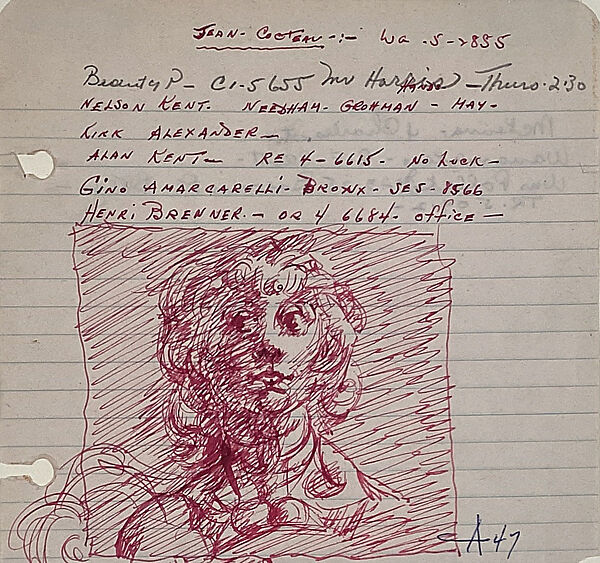 JEAN- COCTEAU-:- Wa -5-2855
Beauty P- CI-5655 Mr Harris - Thurs. 2:30
NELSON KENT. NEEDHAM- GROHMAN - MAY-
KIRK ALEXANDER-
ALAN KENT- RE 4-6615- NO LUCK-
GINO AMARCARELLI- BRONX- SE5-8566
HENRI BRENNER.- OR 4 6684- office-
A 47